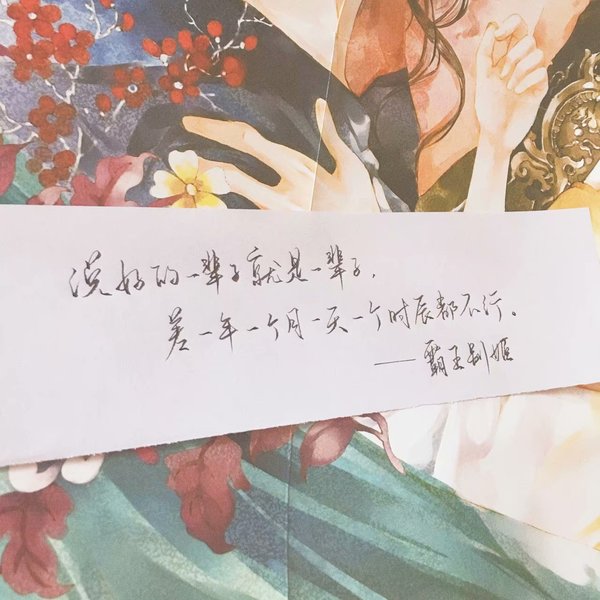 说好的一辈子就是一辈子，
差一年一个月一天一个时辰都不行。
——霸王别姬